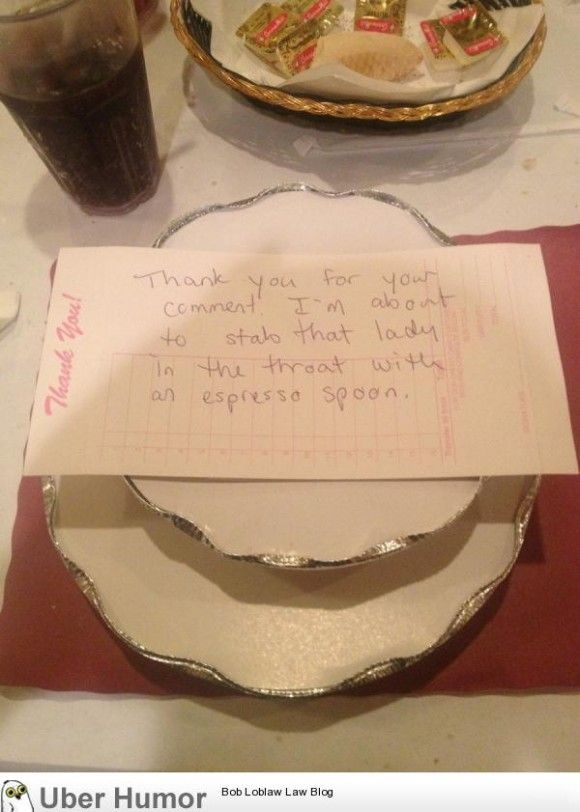 Thank you for your
comment. I'm about
to stab that lady
in the throat with
an espresso spoon.
Thank You!
Uber Humor
Bob Loblaw Law Blog